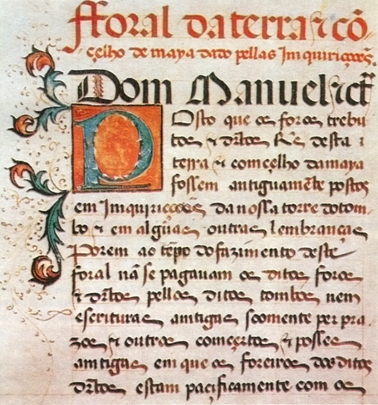 fforal da terra ⁊ cõ
çelho de maya dado pellas Imquiriçoões.
Dom Manuel ⁊ct
Posto que os foros trebu
tos ⁊ dr̃tos Re desta
terra ⁊ comçelho da maya
fossem antiguamẽte postos
em Imquiriçoões da nossa torre do tom
bo ⁊ em algũas outras lembranças
Porem ao tẽpo do fazimento deste
foral nã se pagauam os ditos foros
⁊ dr̃tos pellos ditos tombos nem
escrituras amtigas soomente per pra
zos ⁊ outros comçertos ⁊ posses
amtigas em que os foreiros dos ditos
dr̃tos estam pacificamente com os